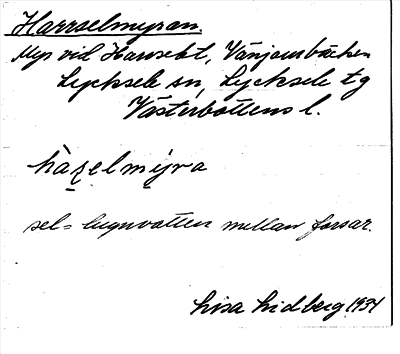 Harrselmyran.
Myr vid Harrselet, Vänjaurbäcken
Lycksele sn, Lycksele tg
Västerbottens l.
hàṣelmýra
sel = lugnvatten mellan forsar.
Lisa Lidberg 1934